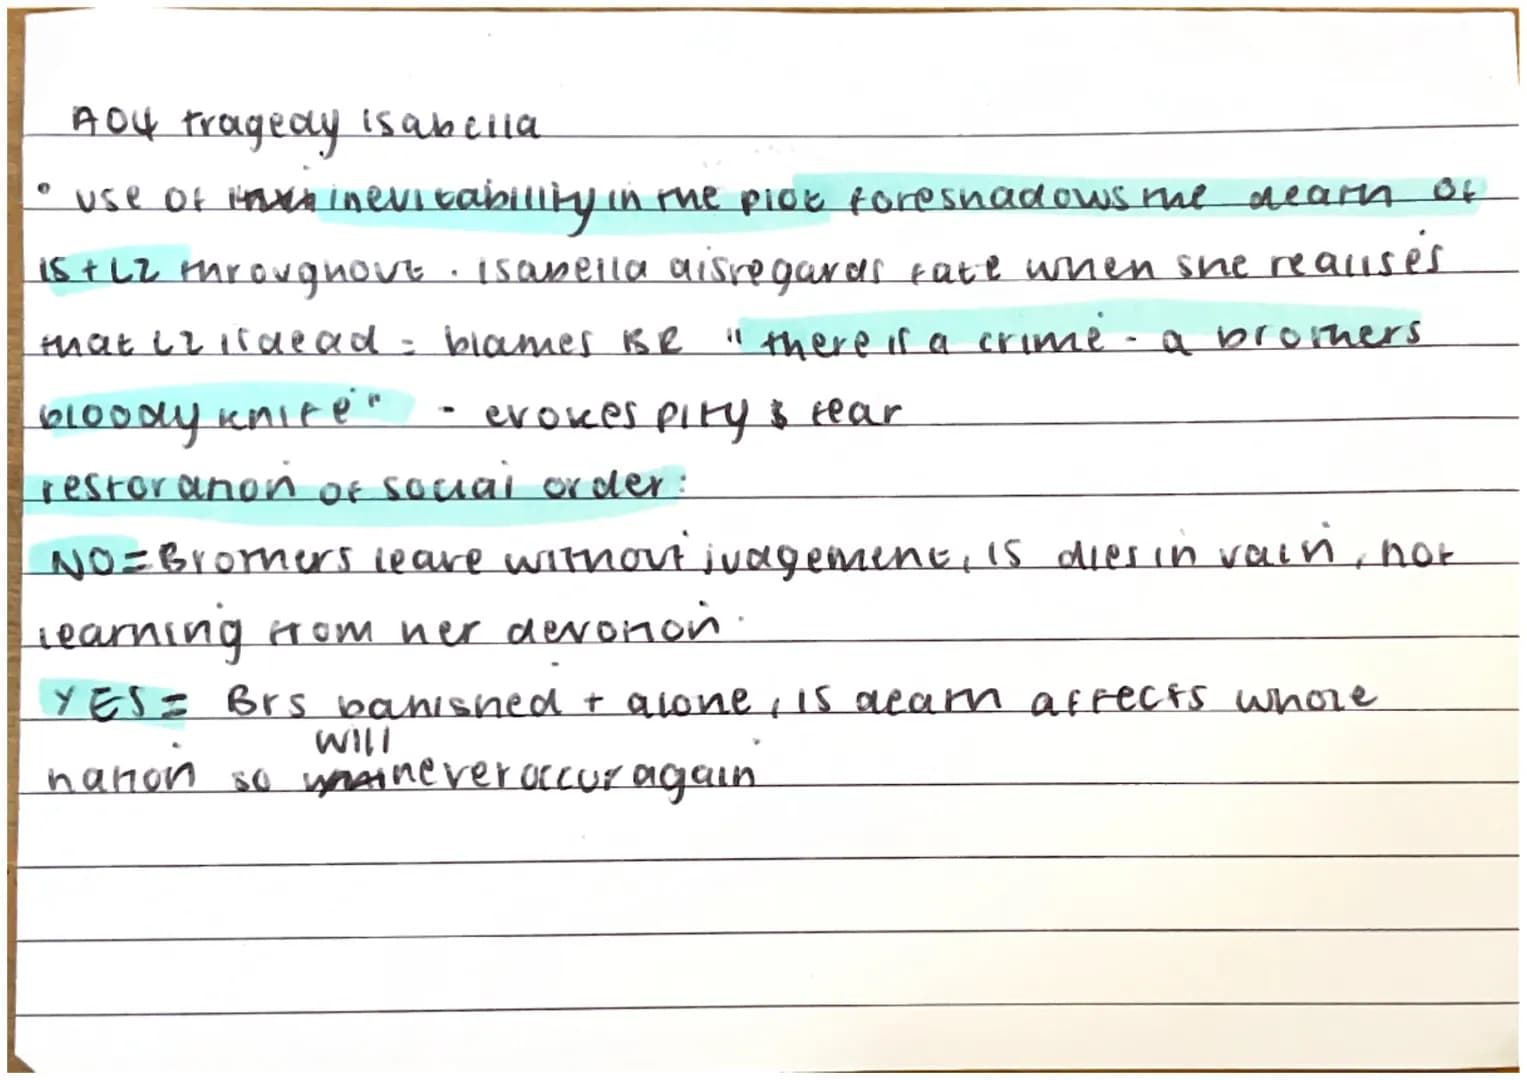 AO4 tragedy Isabella
• use of inevitabillity in the plot foreshadows the death of
IS + LZ throughout. Isabella disregards fate when she realises
that LZ is dead = blames BR "there is a crime - a brothers
bloody knife" - evokes pity & fear
restoration of social order:
NO = Brothers leave without judgement, IS dies in vain, not
learning from her devotion.
YES = Brs banished + alone, IS death affects whole
will
nation so never occur again